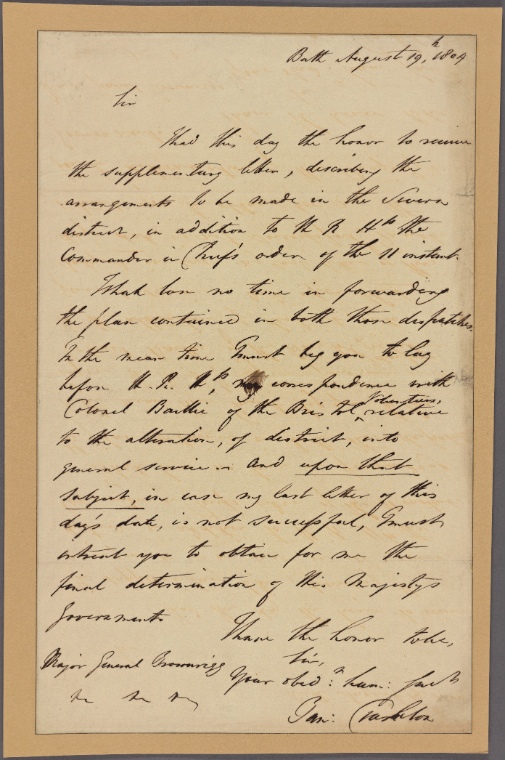 Bath August 19,th 1804
Sir
I had this day the honor to receive
the supplementary letter, describing the
arrangements to be made in the Severn
district, in addition to H R Hs the
Commander in Chief's order of the 11 instant.
I shall lose no time in forwarding
the plan contained in both those dispatches.
In the mean time I must beg you to lay
before H. R. Hs, my correspondence with
Colonel Baillie of the Bristol Volunteers, relative
to the alteration, of district, into
general service and upon that
subject, in case my last letter of this
day's date, is not successful, I must
intreat you to obtain for me the
final determination of His Majestys
Government
I have the honor to be,
Sir,
Your obedt: hum: Servt
Ban: Tarleton
Major General Brownrigg